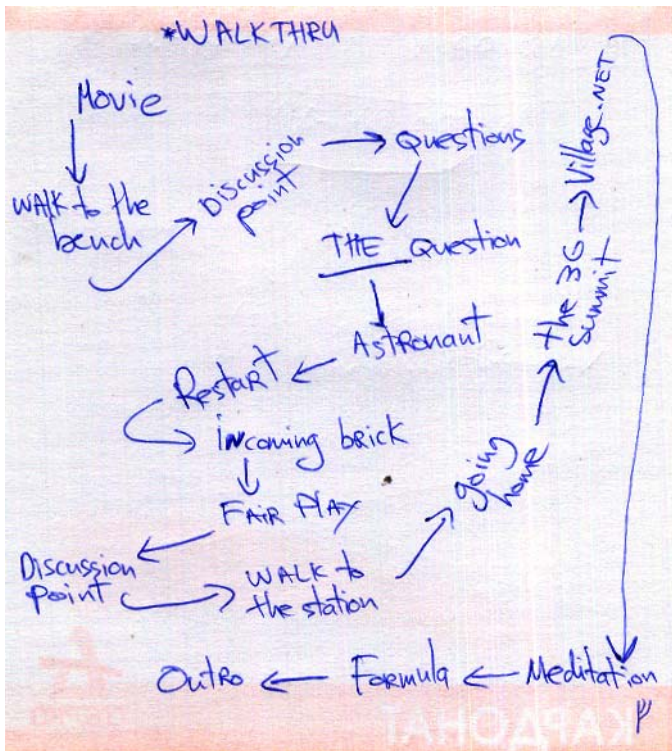 *WALKTHRU
Movie
WALK to the
bench
Discussion
point
Questions
THE Question
Astronaut
Restart
incoming brick
FAIR PLAY
Discussion
point
WALK to
the station
going
home
the 3G
summit
Village.NET
Meditation
Formula
Outro
КАРДОНАТ